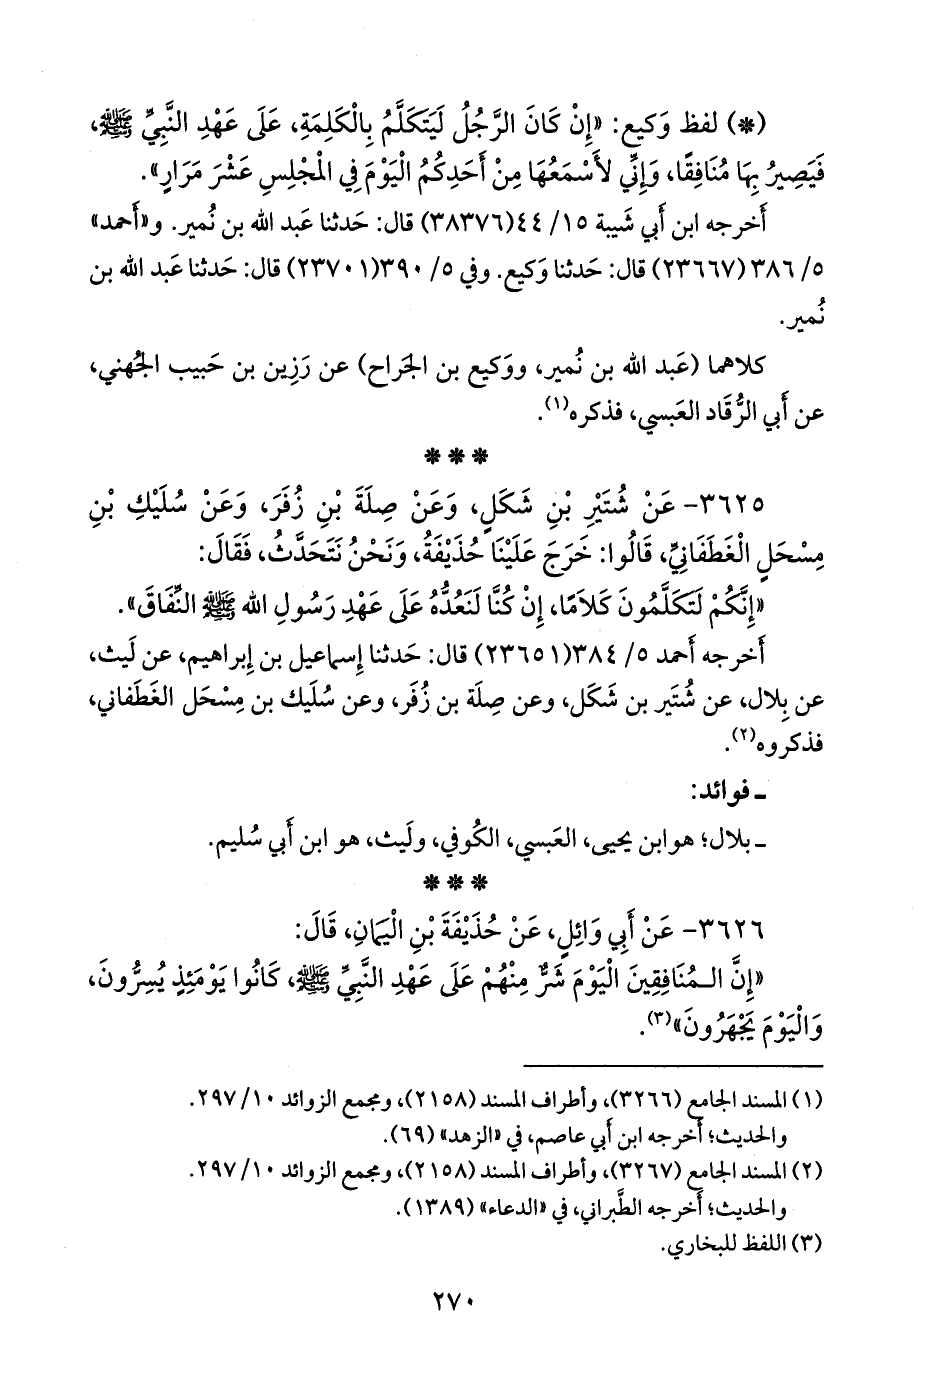 (*) لفظ وَكيع: «إِنْ كَانَ الرَّجُلُ لَيَتَكَلَّمُ بِالْكَلِمَةِ، عَلَى عَهْدِ النَّبِيِّ ﷺ،
فَيَصِيرُ بِهَا مُنَافِقًا، وَإِنِّي لأَسْمَعُهَا مِنْ أَحَدِكُمُ الْيَوْمَ فِي الْمَجْلِسِ عَشْرَ مَرَارٍ».
أَخرجه ابن أبي شَيبة ١٥/ ٤٤(٣٨٣٧٦) قال: حَدثنا عَبد الله بن نُمير. و«أَحمد»
٥/ ٣٨٦ (٢٣٦٦٧) قال: حَدثنا وَكيع. وفي ٥/ ٣٩٠(٢٣٧٠١) قال: حَدثنا عَبد الله بن
نُمير.
كلاهما (عَبد الله بن نُمير، ووَكيع بن الجَراح) عن رَزِين بن حَبيب الجُهني،
عن أَبي الرُّقَاد العَبسي، فذكره(١).
* * *
٣٦٢٥- عَنْ شُتَيْرِ بْنِ شَكَلٍ، وَعَنْ صِلَةَ بْنِ زُفَرَ، وَعَنْ سُلَيْكِ بْنِ
مِسْحَلٍ الْغَطَفَانِيِّ، قَالُوا: خَرَجَ عَلَيْنَا حُذَيْفَةُ، وَنَحْنُ نَتَحَدَّثُ، فَقَالَ:
«إِنَّكُمْ لَتَكَلَّمُونَ كَلاَمًا، إِنْ كُنَّا لَنَعُدُّهُ عَلَى عَهْدِ رَسُولِ الله ﷺ النِّفَاقَ».
أَخرجه أَحمد ٥/ ٣٨٤(٢٣٦٥١) قال: حَدثنا إِسماعيل بن إِبراهيم، عن لَيث،
عن بِلال، عن شُتَير بن شَكَل، وعن صِلَة بن زُفَر، وعن سُلَيك بن مِسْحَل الغَطَفاني،
فذكروه(٢).
ـ فوائد:
ـ بلال؛ هو ابن يحيى، العَبسي، الكُوفي، ولَيث، هو ابن أَبي سُليم.
* * *
٣٦٢٦- عَنْ أَبِي وَائِلٍ، عَنْ حُذَيْفَةَ بْنِ الْيَمَانِ، قَالَ:
«إِنَّ الـمُنَافِقِينَ الْيَوْمَ شَرٌّ مِنْهُمْ عَلَى عَهْدِ النَّبِيِّ ﷺ، كَانُوا يَوْمَئِذٍ يُسِرُّونَ،
وَالْيَوْمَ يَجْهَرُونَ»(٣).
(١) المسند الجامع (٣٢٦٦)، وأطراف المسند (٢١٥٨)، ومجمع الزوائد ١٠/ ٢٩٧.
والحديث؛ أخرجه ابن أبي عاصم، في «الزهد» (٦٩).
(٢) المسند الجامع (٣٢٦٧)، وأطراف المسند (٢١٥٨)، ومجمع الزوائد ١٠/ ٢٩٧.
والحديث؛ أخرجه الطَّبراني، في «الدعاء» (١٣٨٩).
(٣) اللفظ للبخاري.
٢٧٠